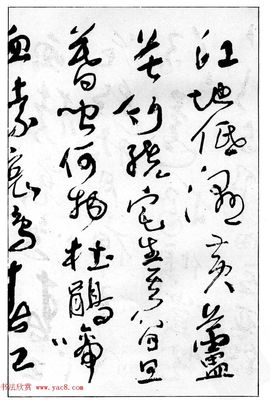 江地低濕黄蘆
苦竹繞宅生其間旦
暮聞何物杜鵑啼
血猿哀鳴春江
书法欣赏 www.yac8.com